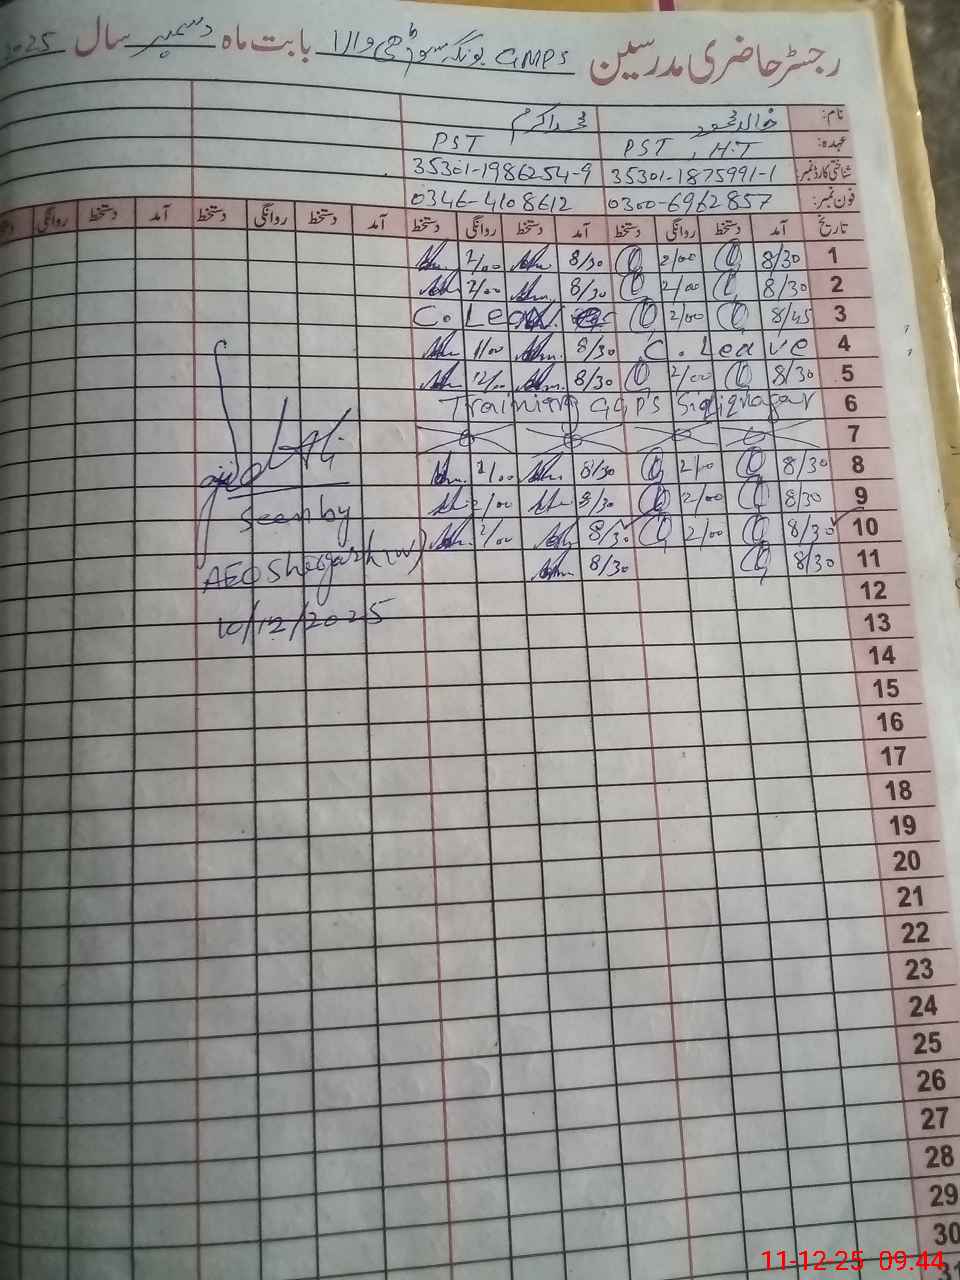 رجسٹر حاضری مدرسین GMPS بونگہ سوڈھی والا بابت ماہ دسمبر سال 2025
نام: خالد محمود محمد اکرم
عہدہ: PST , H.T PST
شناختی کارڈ نمبر: 35301-1875991-1 35301-1986254-9
فون نمبر: 0300-6962857 0346-4108612
تاریخ آمد دستخط روانگی دستخط آمد دستخط روانگی دستخط آمد دستخط روانگی دستخط آمد دستخط روانگی دستخط
1 8/30 2/00 8/30 2/00
2 8/30 2/00 8/30 2/00
3 8/45 2/00 C. Leave
4 C. Leave 8/30 1/00
5 8/30 2/00 8/30 12/00
6 Training GGPS
7
8 8/30 2/00 8/30 2/00
9 8/30 2/00 8/30 2/00
10 8/30 2/00 8/30 2/00
11 8/30 8/30
12
13
14
15
16
17
18
19
20
21
22
23
24
25
26
27
28
29
30
31
Seen by
AEO Shergarh (w)
10/12/2025
11-12-25 09.44